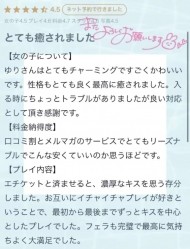 ★★★★★ 4.5 ネット予約で行きました
とても癒されました
また よろしく お願いします
【女の子について】
ゆりさんはとてもチャーミングですごくかわいい
です。性格もとても良く最高に癒されました。入
る時にちょっとトラブルがありましたが良い対応
として頂き感謝です。
【料金納得度】
口コミ割とメルマガのサービスでとてもリーズナ
ブルでこんな安くていいのか思うほどです。
【プレイ内容】
エチケットと済ませると、濃厚なキスを思う存分
しました。お互いにイチャイチャプレイが好きと
いうことで、最初から最後までずっとキスを中心
としたプレイでした。フェラも完璧で最高に気持
ちよく大満足でした。